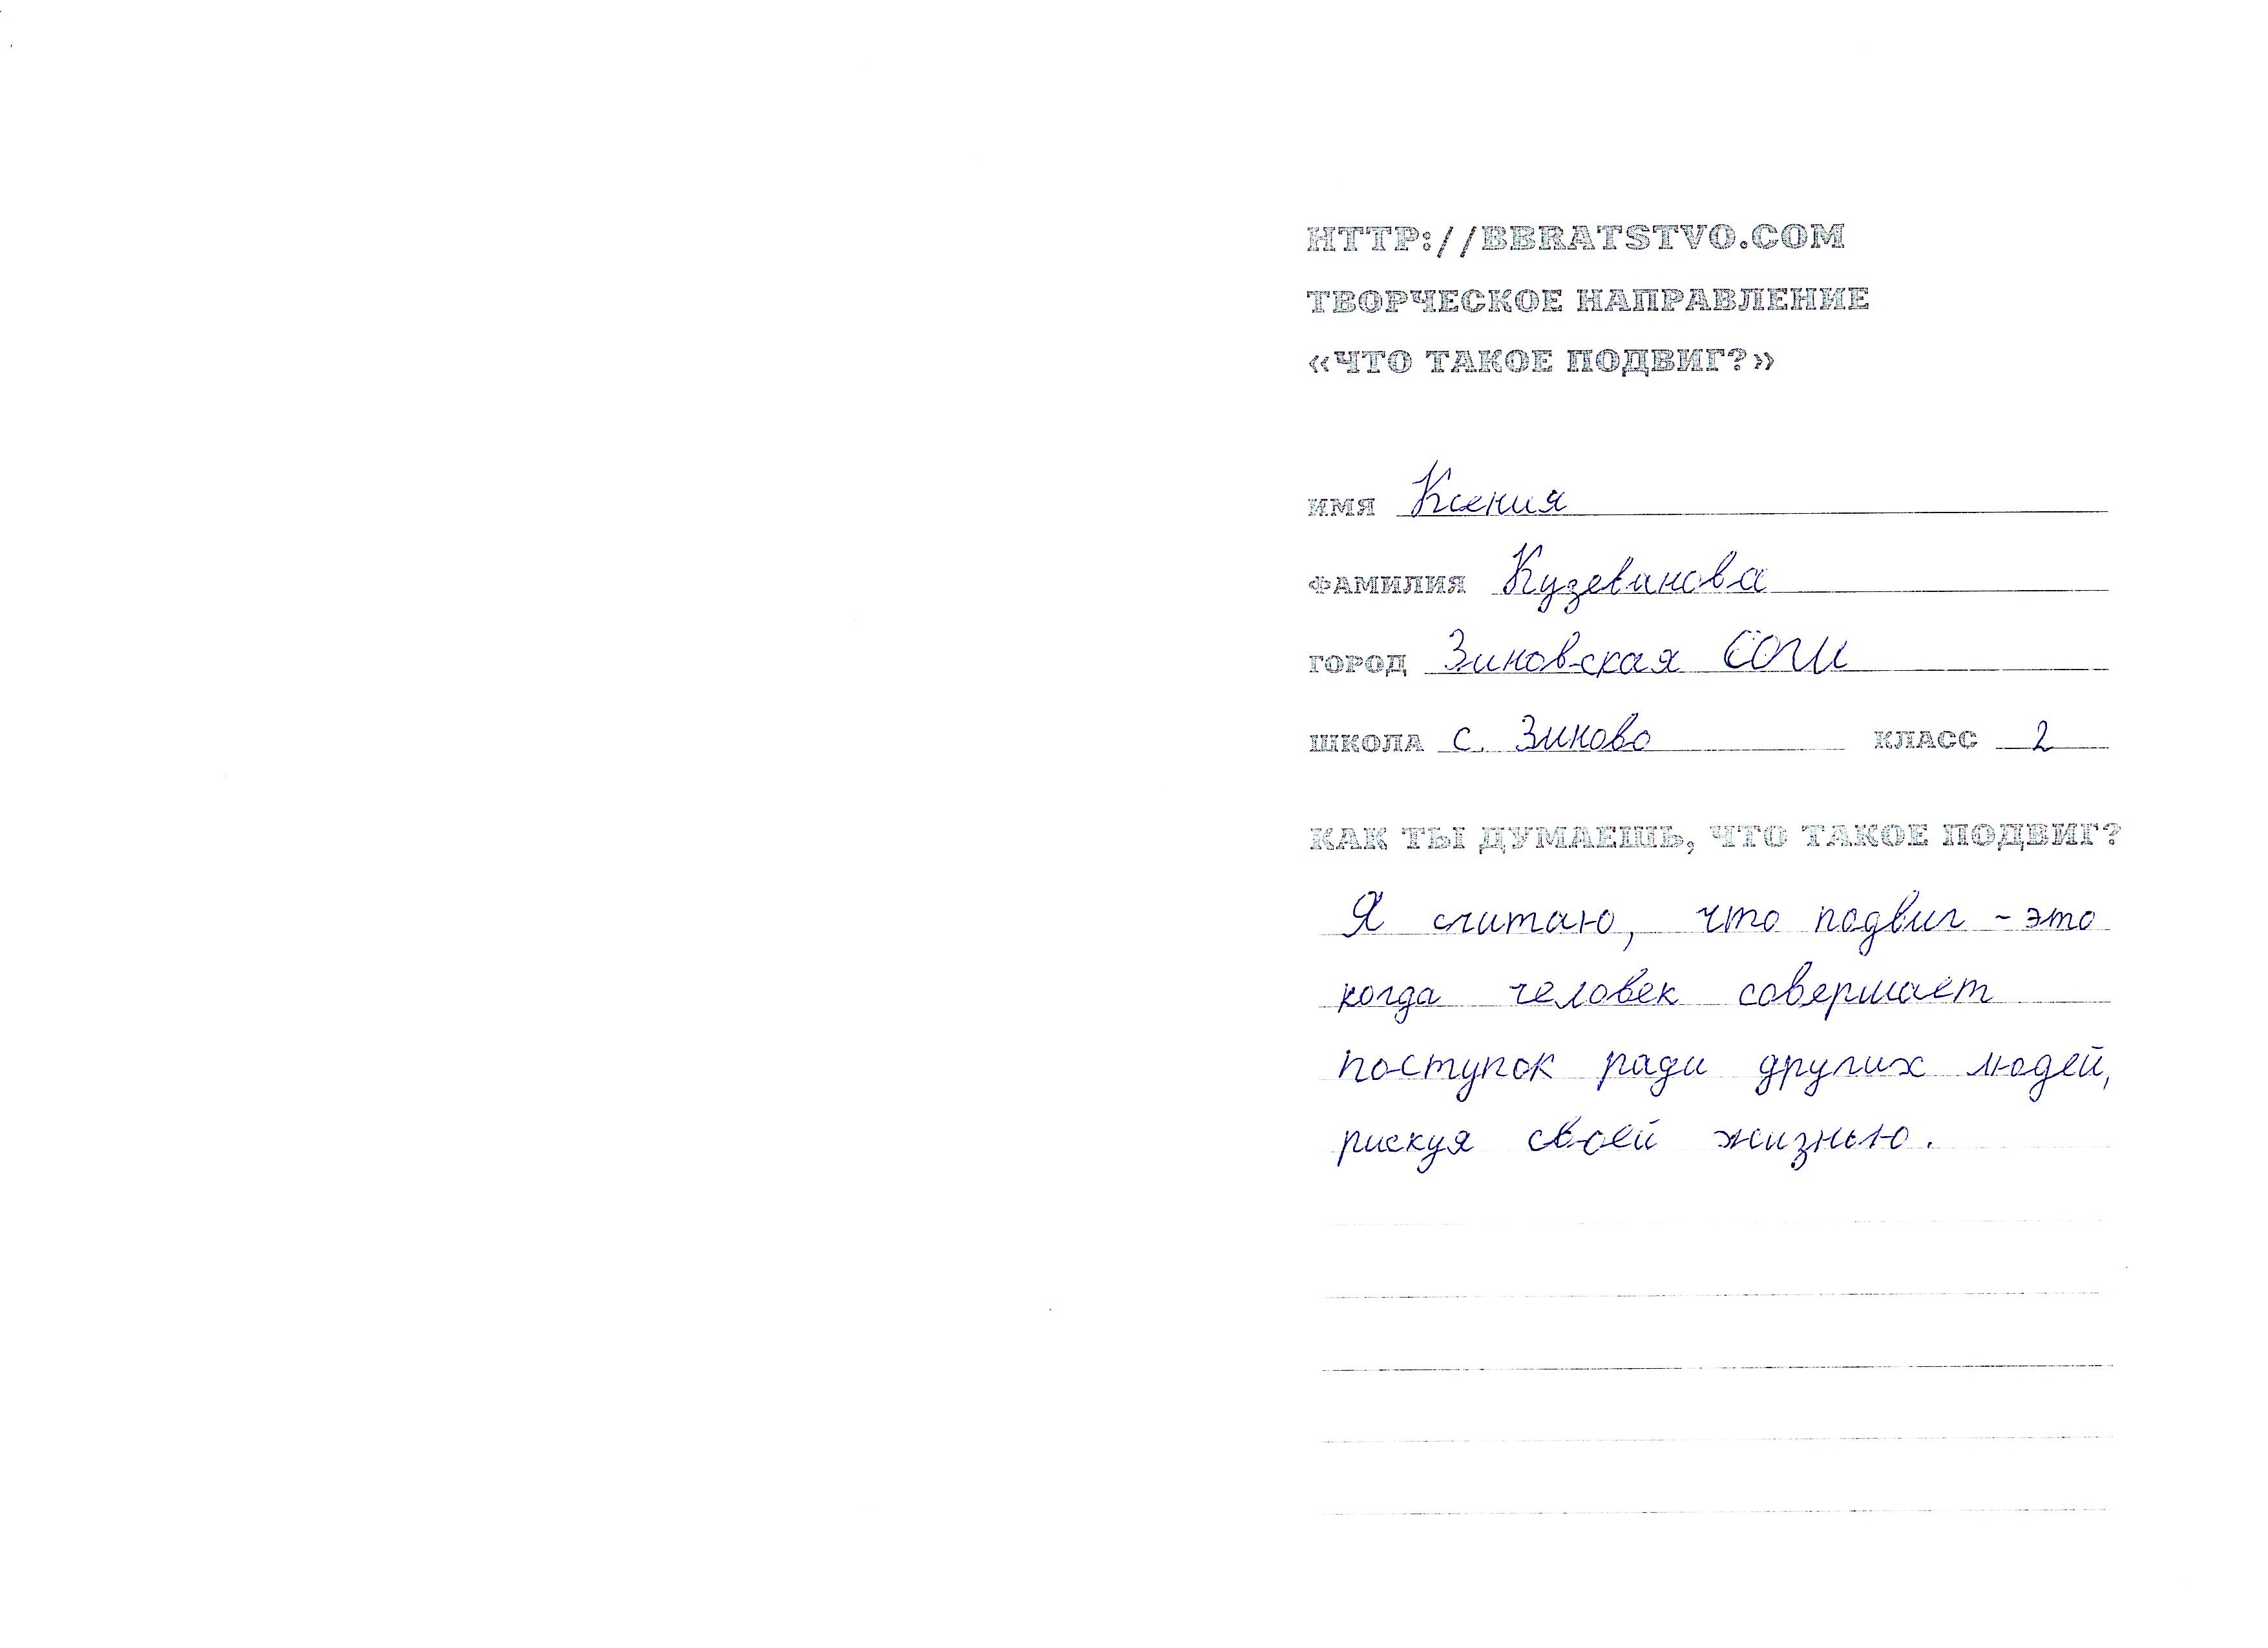 HTTP://BBRATSTVO.COM
ТВОРЧЕСКОЕ НАПРАВЛЕНИЕ
«ЧТО ТАКОЕ ПОДВИГ?»
ИМЯ Ксения
ФАМИЛИЯ Кузеванова
ГОРОД Зиновская СОШ
ШКОЛА с. Зиново КЛАСС 2
КАК ТЫ ДУМАЕШЬ, ЧТО ТАКОЕ ПОДВИГ?
Я считаю, что подвиг - это
когда человек совершает
поступок ради других людей,
рискуя своей жизнью.